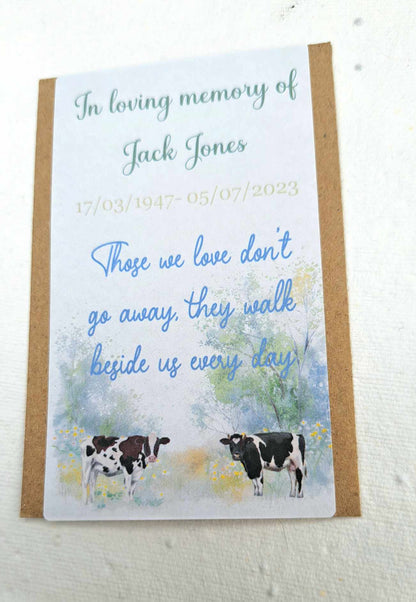 In loving memory of
Jack Jones
17/03/1947- 05/07/2023
Those we love don't
go away, they walk
beside us every day.